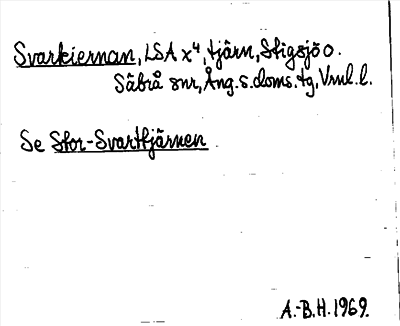 Svarkiernan, LSA x⁴, tjärn, Stigsjö o.
Säbrå snr, Ång.s.doms.tg, Vrnl.l.
Se Stor-Svarttjärnen
A.-B.H. 1969.